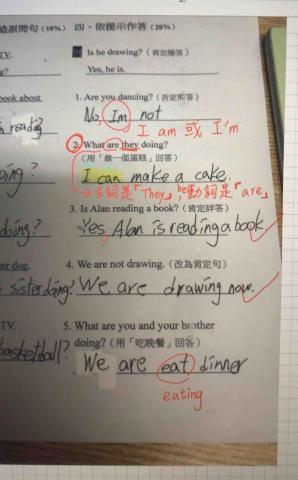 造原問句(10%) 四、依提示作答(20%)
TV. Is he drawing?(肯定簡答)
g? Yes, he is.
book about 1. Are you dancing?(否定簡答)
reading? No, Im not
I am 或 I'm
2. What are they doing?
(用「做一個蛋糕」回答)
oing? I can make a cake.
→主詞是「They」, be動詞是「are」
3. Is Alan reading a book?(肯定詳答)
doing? Yes, Alan is reading a book.
er dog. 4. We are not drawing.(改為肯定句)
sister doing? We are drawing now.
TV. 5. What are you and your brother
doing?(用「吃晚餐」回答)
basketball? We are eat dinner
eating